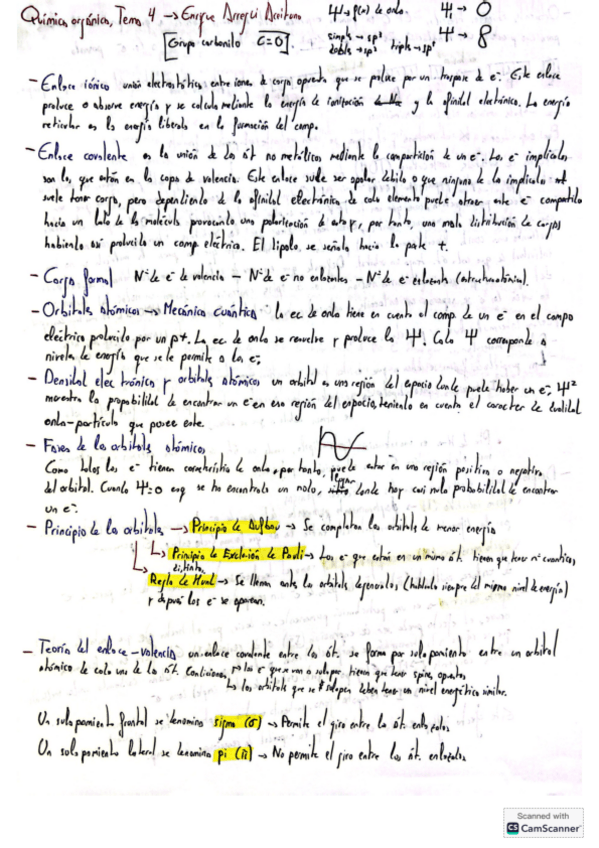 Química orgánica, Tema 4 → Enrique Arregui Arritano
Ψ → f(x) de onda. Ψ → O
[Grupo carbonilo C=O]. simple → sp³ Ψ → 8
doble → sp² triple → sp¹
- Enlace iónico unión electrostática entre iones de carga opuesta que se produce por un traspaso de e⁻. Este enlace
produce o absorve energía y se calcula mediante la energía de ionización y la afinidad electrónica. La energía
reticular es la energía liberada en la formación del comp.
- Enlace covalente es la unión de dos át no metálicos mediante la compartición de un e⁻. Los e⁻ implicados
son los que están en la capa de valencia. Este enlace suele ser apolar debido a que ninguno de los implicados
suele tener carga, pero dependiendo de la afinidad electrónica de cada elemento puede atraer este e⁻ compartido
hacia un lado de la molécula provocando una polarización de esta y, por tanto, una mala distribución de cargas
habiendo así producido un campo eléctrico. El dipolo se señala hacia la parte +.
- Carga formal Nº de e⁻ de valencia - Nº de e⁻ no enlazantes - Nº de e⁻ enlazants (estructura atómica).
- Orbitales atómicos → Mecánica cuántica: la ec. de onda tiene en cuenta el comp. de un e⁻ en el campo
eléctrico producido por un p+. La ec de onda se resuelve y produce la Ψ. Cada Ψ corresponde a
niveles de energía que se le permite a los e⁻.
- Densidad electrónica y orbitales atómicos un orbital es una región del espacio donde puede haber un e⁻; Ψ²
muestra la probabilidad de encontrar un e⁻ en esa región del espacio, teniendo en cuenta el caracter de dualidad
onda-partícula que posee este.
- Fases de los orbitales atómicos
Como todos los e⁻ tienen característica de onda, por tanto, puede estar en una región positiva o negativa
del orbital. Cuando Ψ=0 es q se ha encontrado un nodo, lugar donde hay casi nula probabilidad de encontrar
un e⁻.
- Principio de los orbitales → Principio de Aufbau → Se completan los orbitales de menor energía
↳ Principio de Exclusión de Pauli → Los e⁻ que están en un mismo át. tienen que tener nº cuanticos
distintos.
↳ Regla de Hund → Se llenan antes los orbitales degenerados (hablando siempre del mismo nivel de energía)
y después los e⁻ se aparean.
- Teoría del enlace-valencia un enlace covalente entre los át. se forma por solapamiento entre un orbital
atómico de cada uno de los át. Condiciones ↗ los e⁻ que se van a solapar, tienen que tener spines opuestos
↳ los orbitals que se solapen deben tener un nivel energético similar.
Un solapamiento frontal se denomina sigma (σ) → Permite el giro entre los át. enlazados.
Un solapamiento lateral se denomina pi (π) → No permite el giro entre los át. enlazados.
Scanned with
CS CamScanner